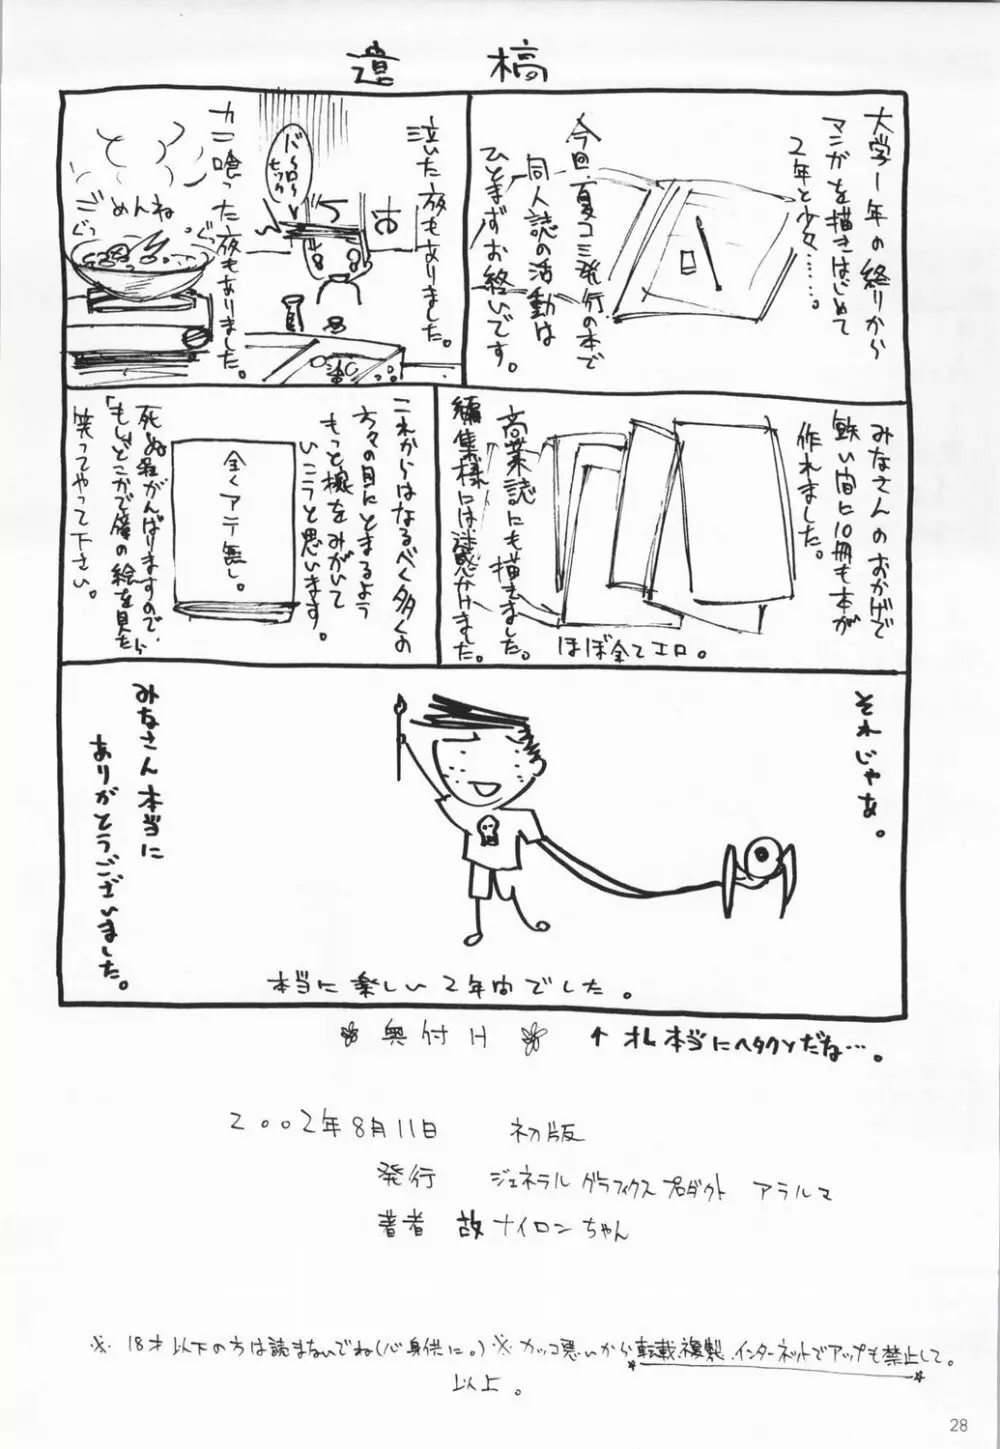 遺稿
大学一年の終りから
マンガを描きはじめて
2年と少々……。
今回、夏コミ発行の本で
同人誌の活動は
ひとまずお終いです。
泣いた夜もありました。
カニ喰った夜もありました。
ごめんね
ぐっ
ぐっ
みなさんのおかげで
短い間に10冊も本が
作れました。
商業誌にも描きました。
編集様には迷惑かけました。
ほぼ全てエロ。
これからはなるべく多くの
方々の目にとまるよう
もっと様をみがいて
いこうと思います。
全くアテ無し。
死ぬ程がんばりますので、
「もしどこかで僕の絵を見たら
笑ってやって下さい。
それじゃあ。
みなさん本当に
ありがとうございました。
本当に楽しい2年間でした。
奥付け
↑オレ本当にヘタクソだね…。
2002年8月11日 初版
発行 ジェネラルグラフィクスプロダクト アラルマ
著者 故ナイロンちゃん
※18才以下の方は読まないでね(心身供に。)※カッコ悪いから転載、複製、インターネットでアップも禁止して。
以上。
28